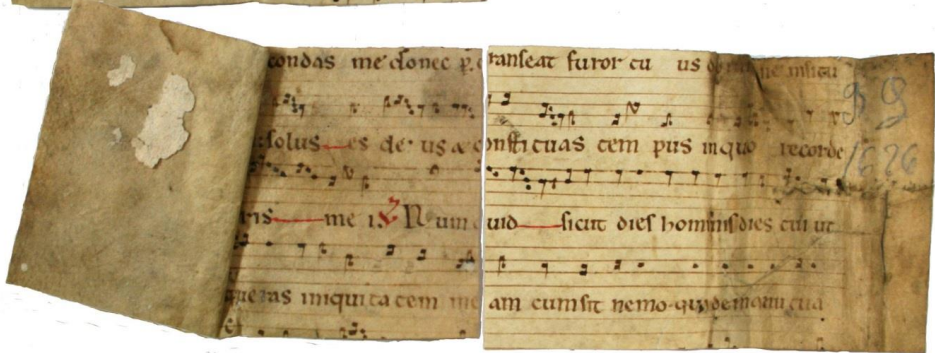 condas me donec p transeat furor tu us
solus es de us & constituas tem pus in quo recorde
ris me i V Num quid sicut dies hominis dies tui ut
queras iniquitatem me am cum sit nemo qui de manu tua
1626